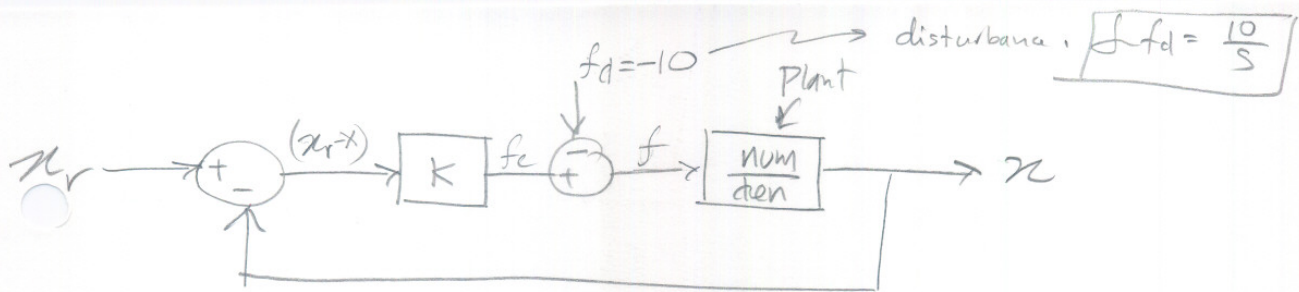 disturbance. L fd = 10/S
fd=-10
Plant
xr
+
-
(xr-x)
K
fc
-
+
f
num/den
x